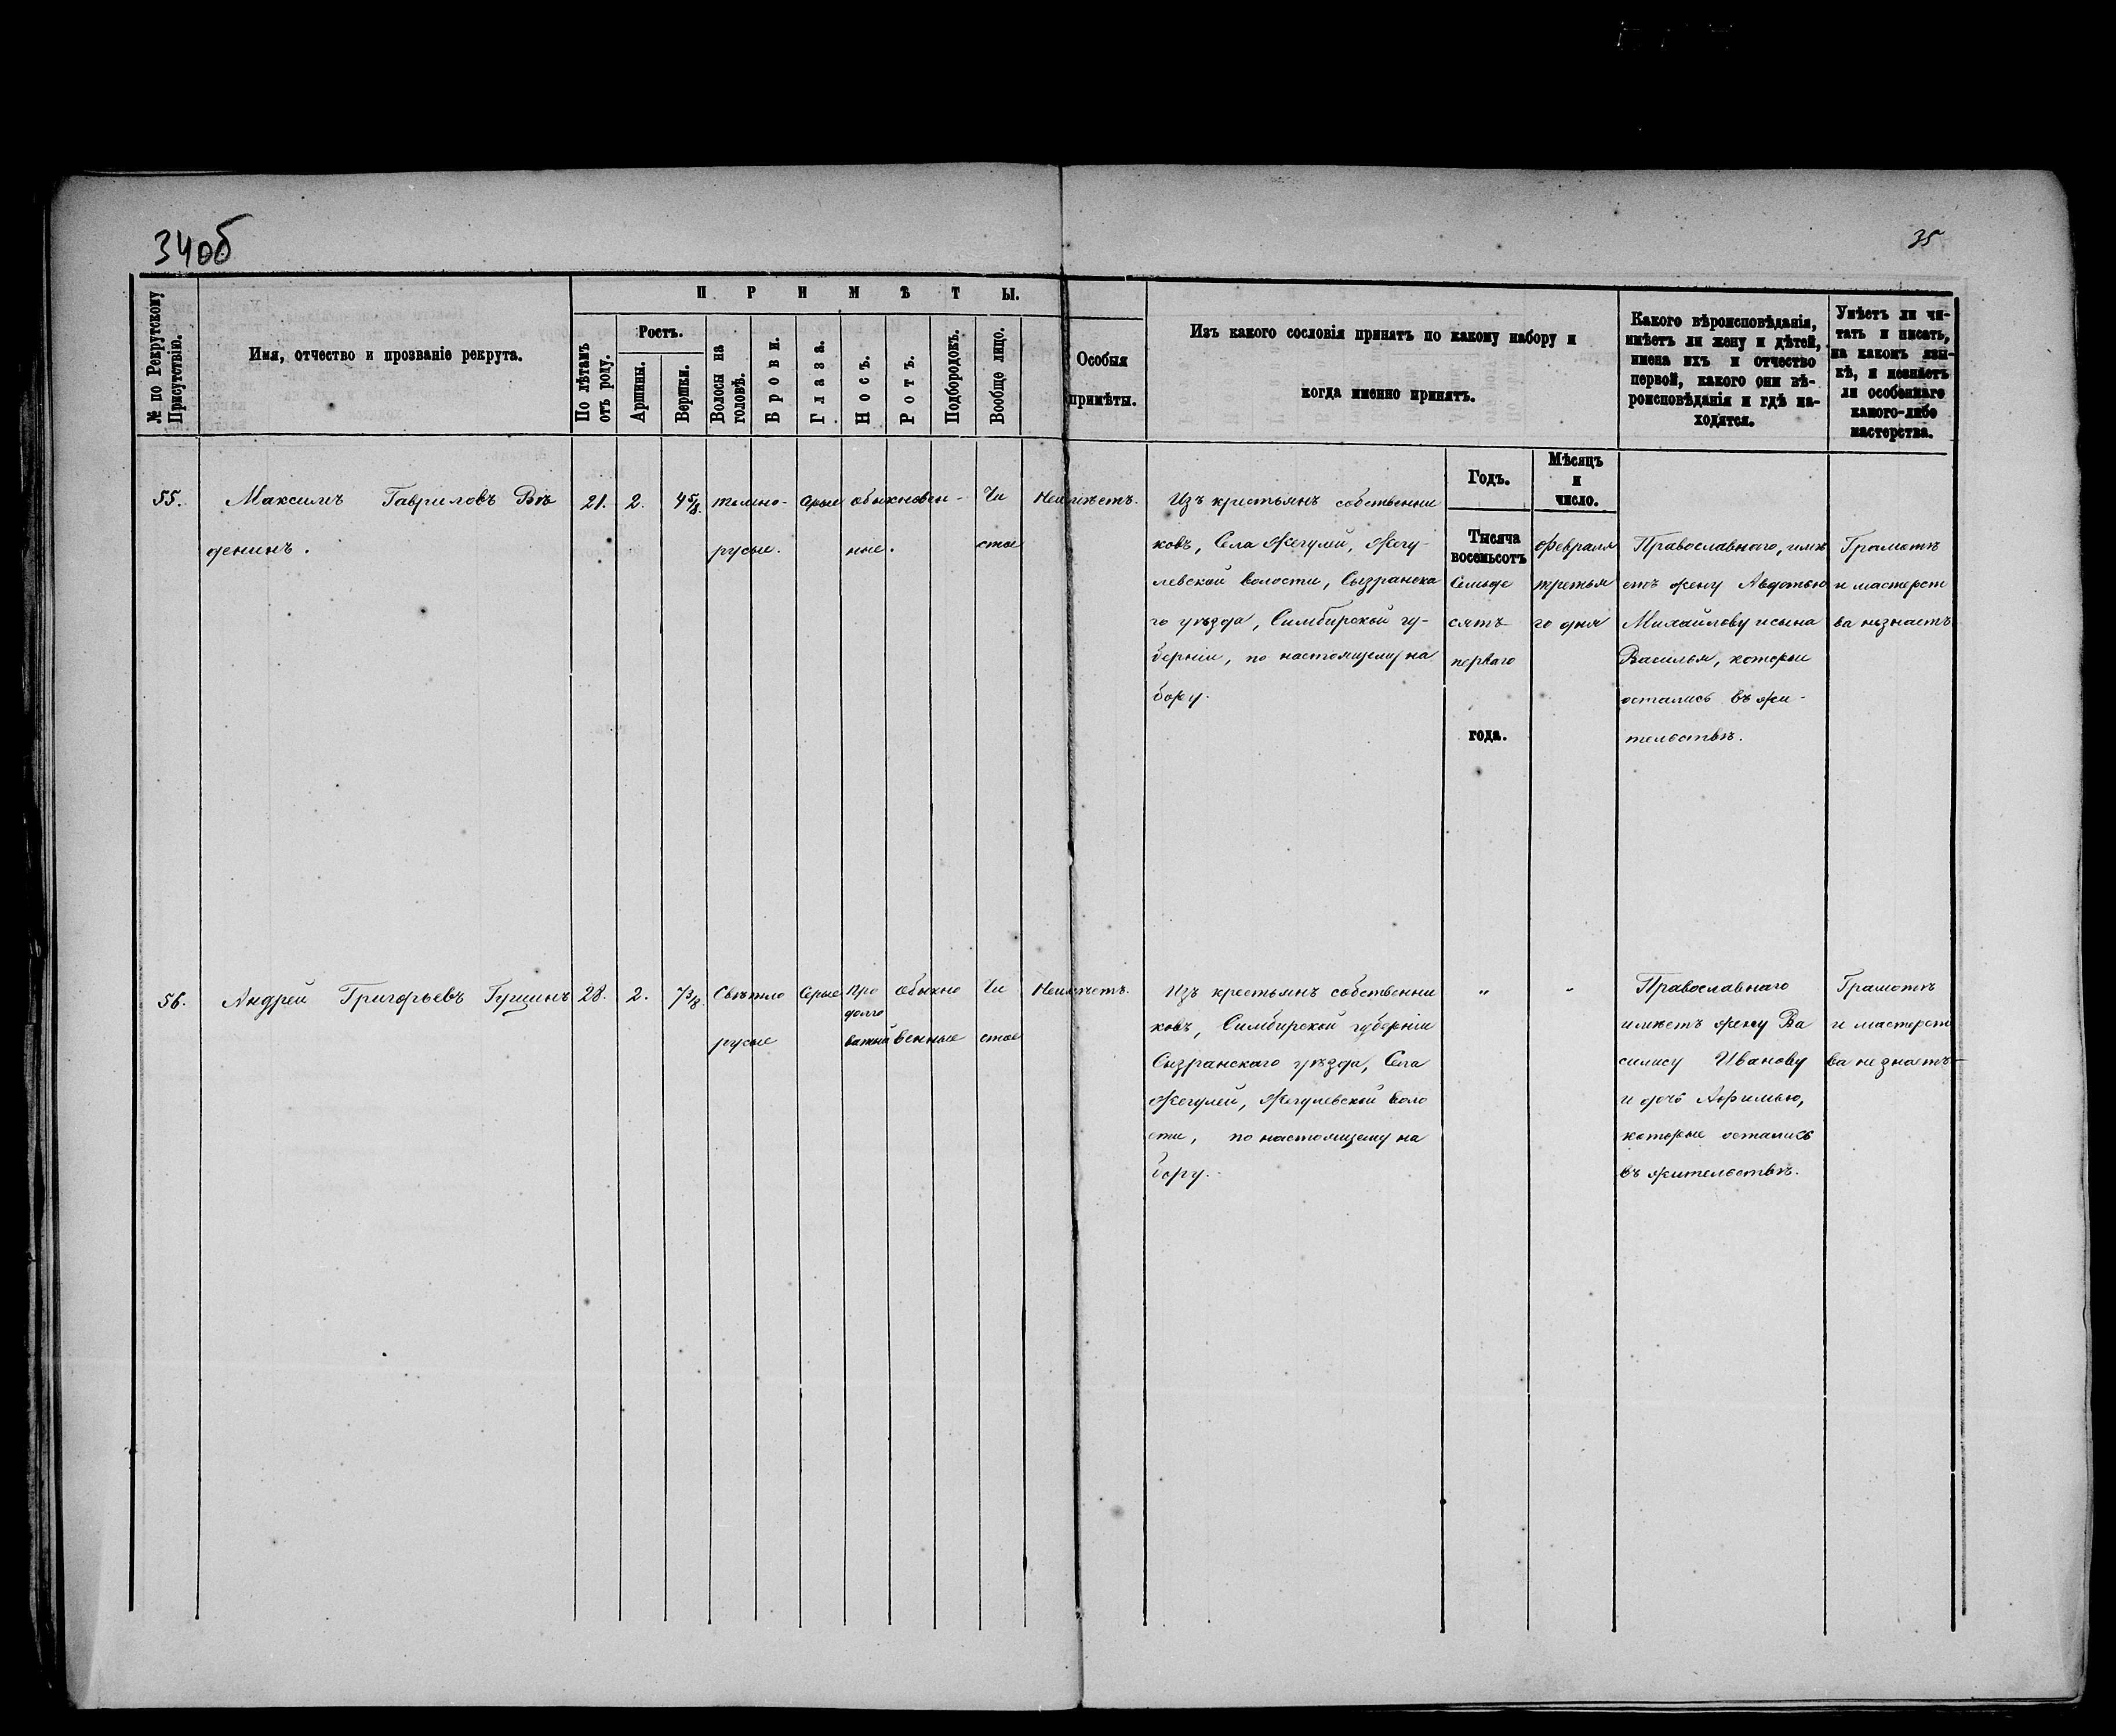 34об
35
П Р И М Ѣ Т Ы.
№ по Рекрутскому
Присутствію.
Имя, отчество и прозваніе рекрута.
По лѣтамъ
отъ роду.
Ростъ.
Аршины.
Вершки.
Волосы на
головѣ.
Брови.
Глаза.
Носъ.
Ротъ.
Подбородокъ.
Вообще лицо.
Особыя
примѣты.
Изъ какого сословія принятъ по какому набору и
когда именно принятъ.
Какого вѣроисповѣданія,
имѣетъ ли жену и дѣтей,
имена ихъ и отчество
первой, какого они вѣ-
роисповѣданія и гдѣ на-
ходятся.
Умѣетъ ли чи-
тать и писать,
на какомъ язы-
кѣ, и незнаетъ
ли особеннаго
какого-либо
мастерства.
Годъ.
Мѣсяцъ
и
число.
55.
Максимъ Гавриловъ Вѣ
денинъ.
21.
2.
4 5/8.
темно-
русые.
Серые
обыкновен-
ные.
Чи
стое
Неимѣетъ.
Изъ крестьянъ собственни
ковъ, Села Жегулей, Жегу-
левской волости, Сызранска
го уѣзда, Симбирской гу-
берніи, по настоящему на
бору.
Тысяча
восемьсотъ
Семьде
сятъ
перваго
года.
Февраля
третья
го дня
Православнаго, имѣ
етъ жену Авдотью
Михайлову и сына
Василья, которые
остались въ жи-
тельствѣ.
Грамотѣ
и мастерст
ва незнаетъ
56.
Андрей Григорьевъ Гущинъ
28.
2.
7 3/8.
Свѣтло
русые
Серые
Про
долго
ватый
обыкно
венные
Чи
стое
Неимѣетъ.
Изъ крестьянъ собственни
ковъ, Симбирской губерніи
Сызранскаго уѣзда, Села
Жегулей, Жегулевской воло
сти, по настоящему на
бору.
"
"
Православнаго
имѣетъ жену Ва
силису Иванову
и дочь Афимью,
которые остались
въ жительствѣ.
Грамотѣ
и мастерст
ва не знаетъ